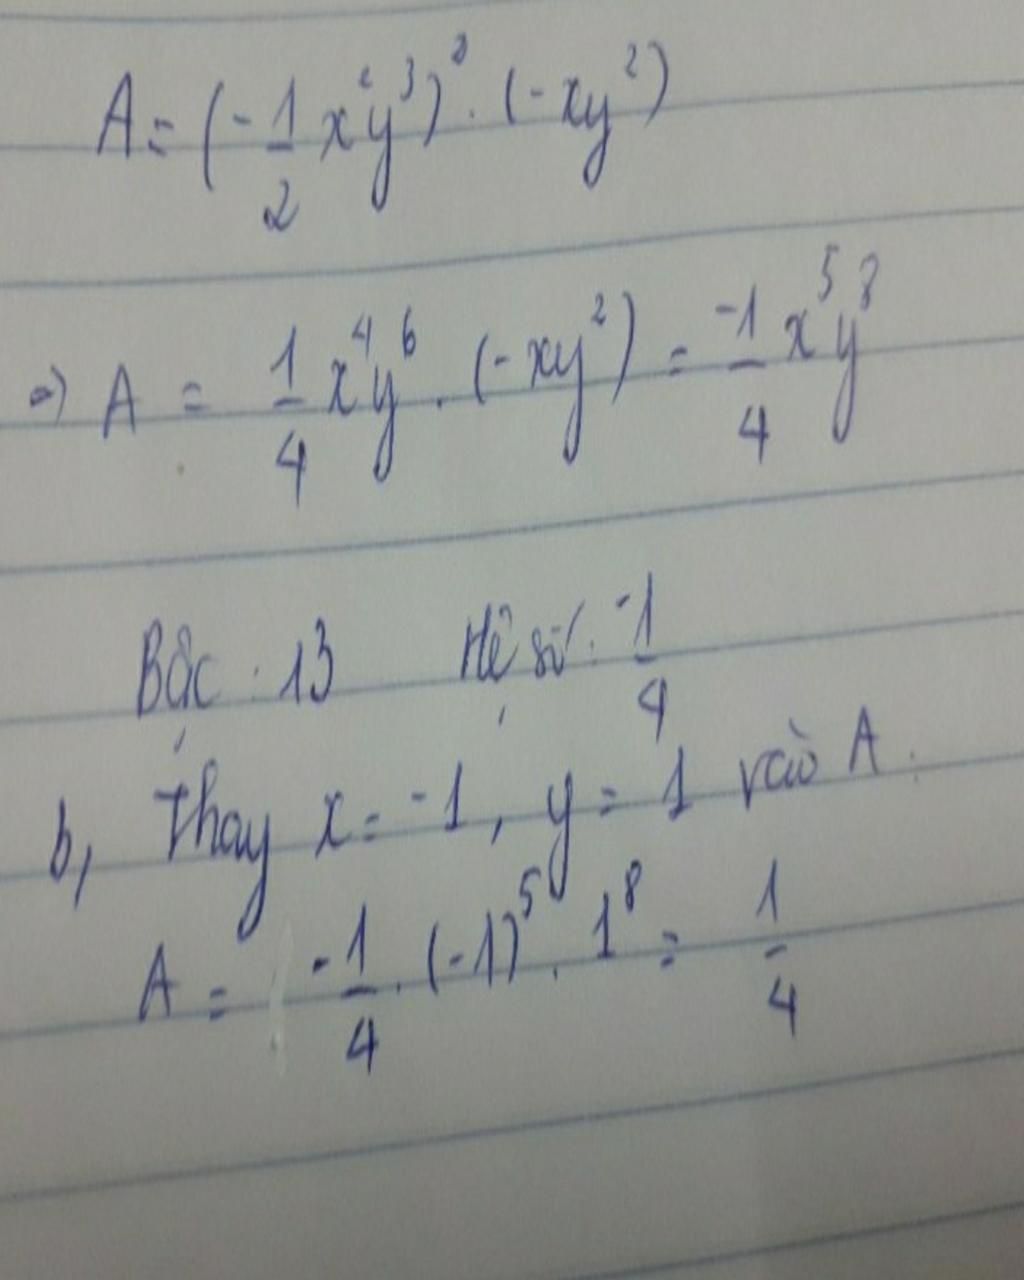 A = (-1/2 x²y³)² . (-xy²)
=> A = 1/4 x⁴y⁶ . (-xy²) = -1/4 x⁵y⁸
Bậc : 13 Hệ số : -1/4
b, Thay x = -1, y = 1 vào A.
A = -1/4 . (-1)⁵ . 1⁸ = 1/4